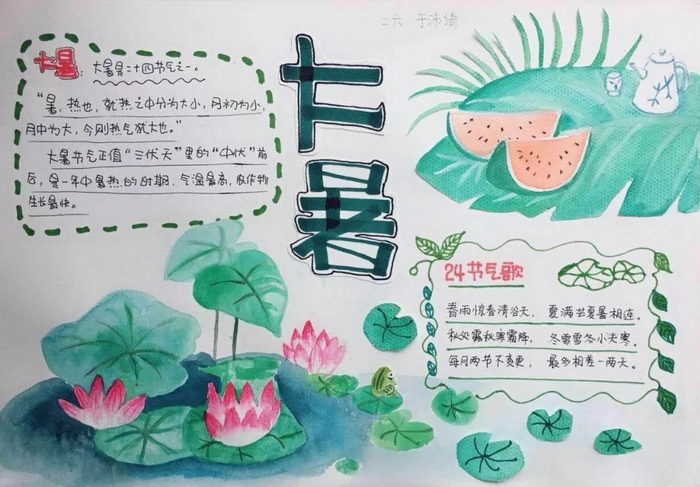 二六
大暑
大暑：大暑是二十四节气之一。
“暑，热也，就热之中分为大小，月初为小，
月中为大，今则热气犹大也。”
大暑节气正值“三伏天”里的“中伏”前
后，是一年中最热的时期，气温最高，农作物
生长最快。
24节气歌
春雨惊春清谷天， 夏满芒夏暑相连。
秋处露秋寒霜降， 冬雪雪冬小大寒。
每月两节不变更， 最多相差一两天。